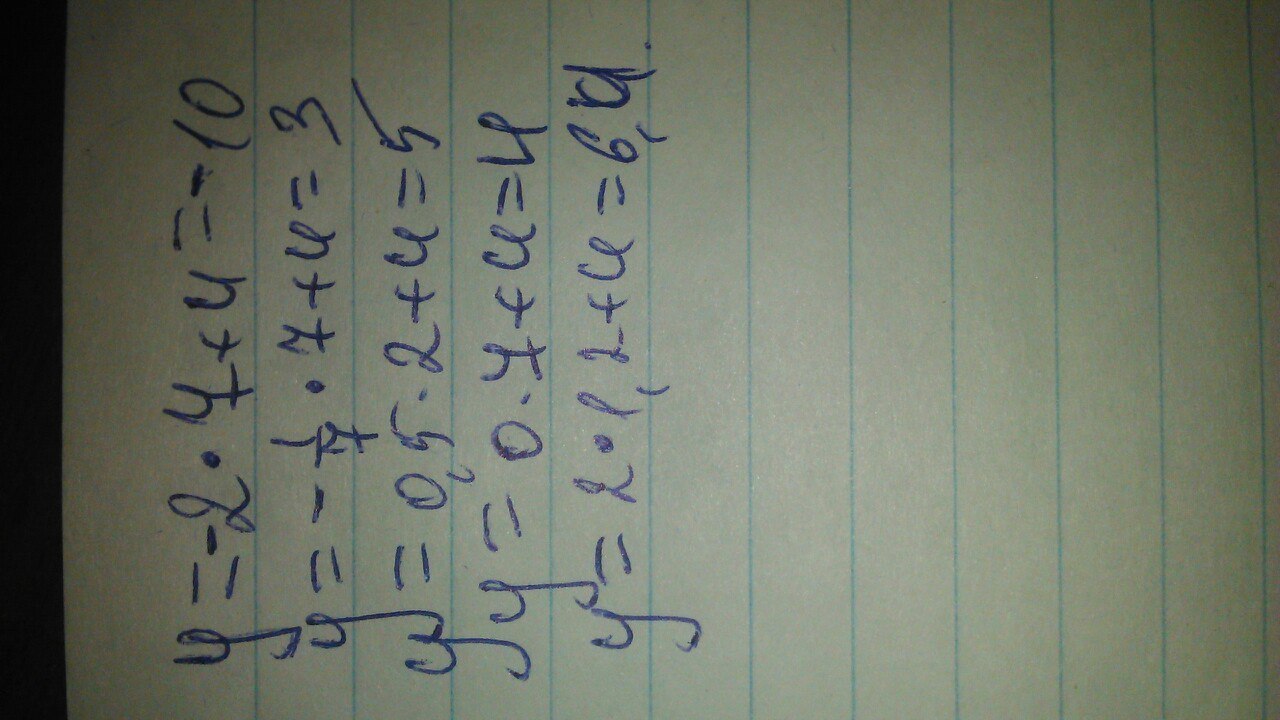 y = -2 · 7 + 4 = -10
y = - 1/7 · 7 + 4 = 3
y = 0,5 · 2 + 4 = 5
y = 0 · 7 + 4 = 4
y = 2 · 1,2 + 4 = 6,4.